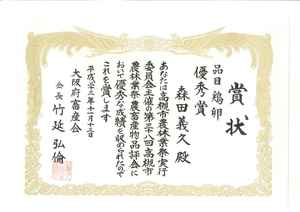 賞状
品目 鶏卵
優秀賞
森田義久殿
あなたは高槻市農林業祭実行
委員会主催の第二八高槻市
農林業祭農畜産物品評会に
おいて優秀な成績を収められたので
これを賞します
平成二三年十一月十三日
大阪府畜産会
会長 竹延弘倫